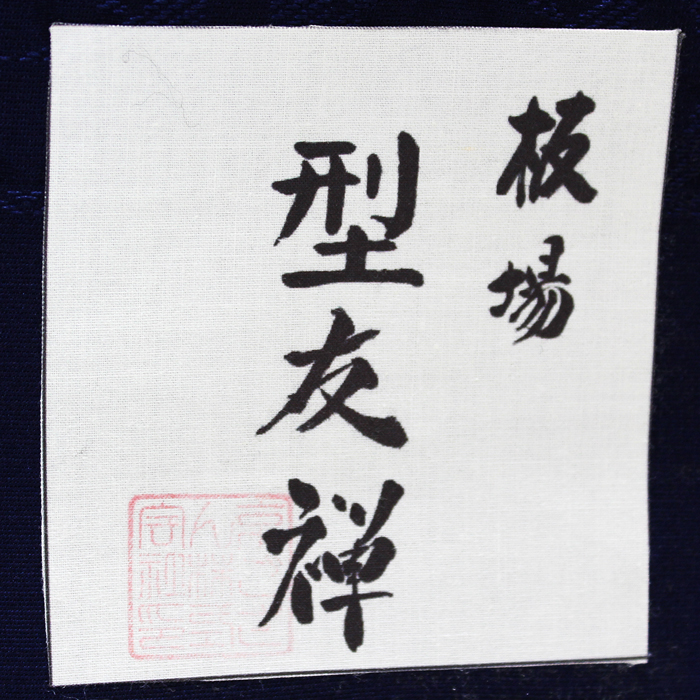 板場
型友禅